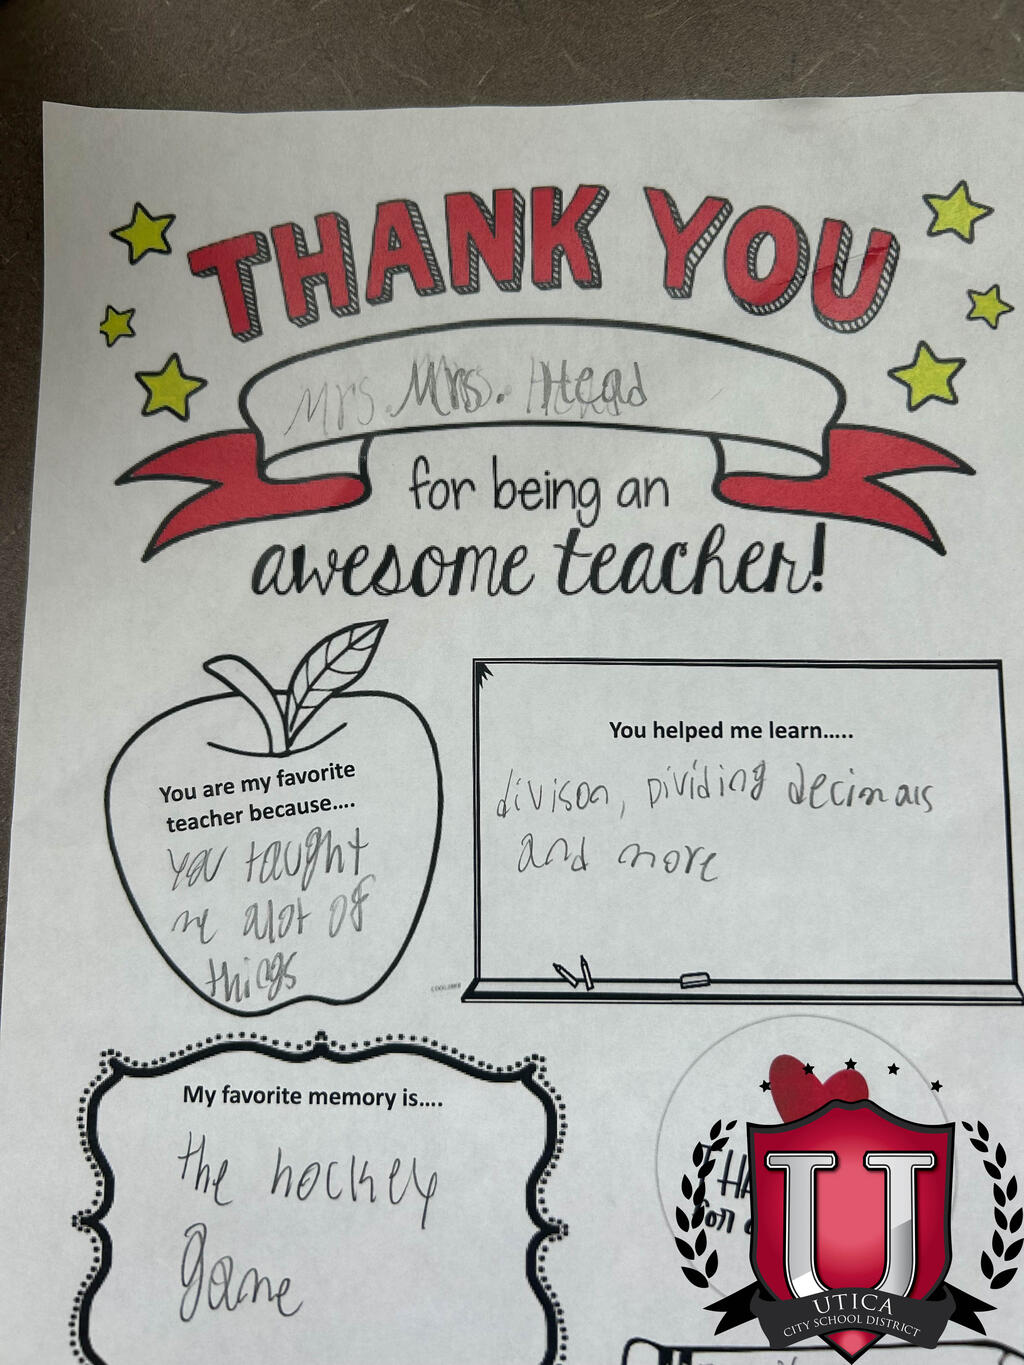 THANK YOU
Mrs. Mrs. Head
for being an
awesome teacher!
You are my favorite
teacher because....
You taught
me alot of
things
You helped me learn.....
divison, Dividing decimals
and more
My favorite memory is....
the hockey
game
THA
for
UTICA
CITY SCHOOL DISTRICT